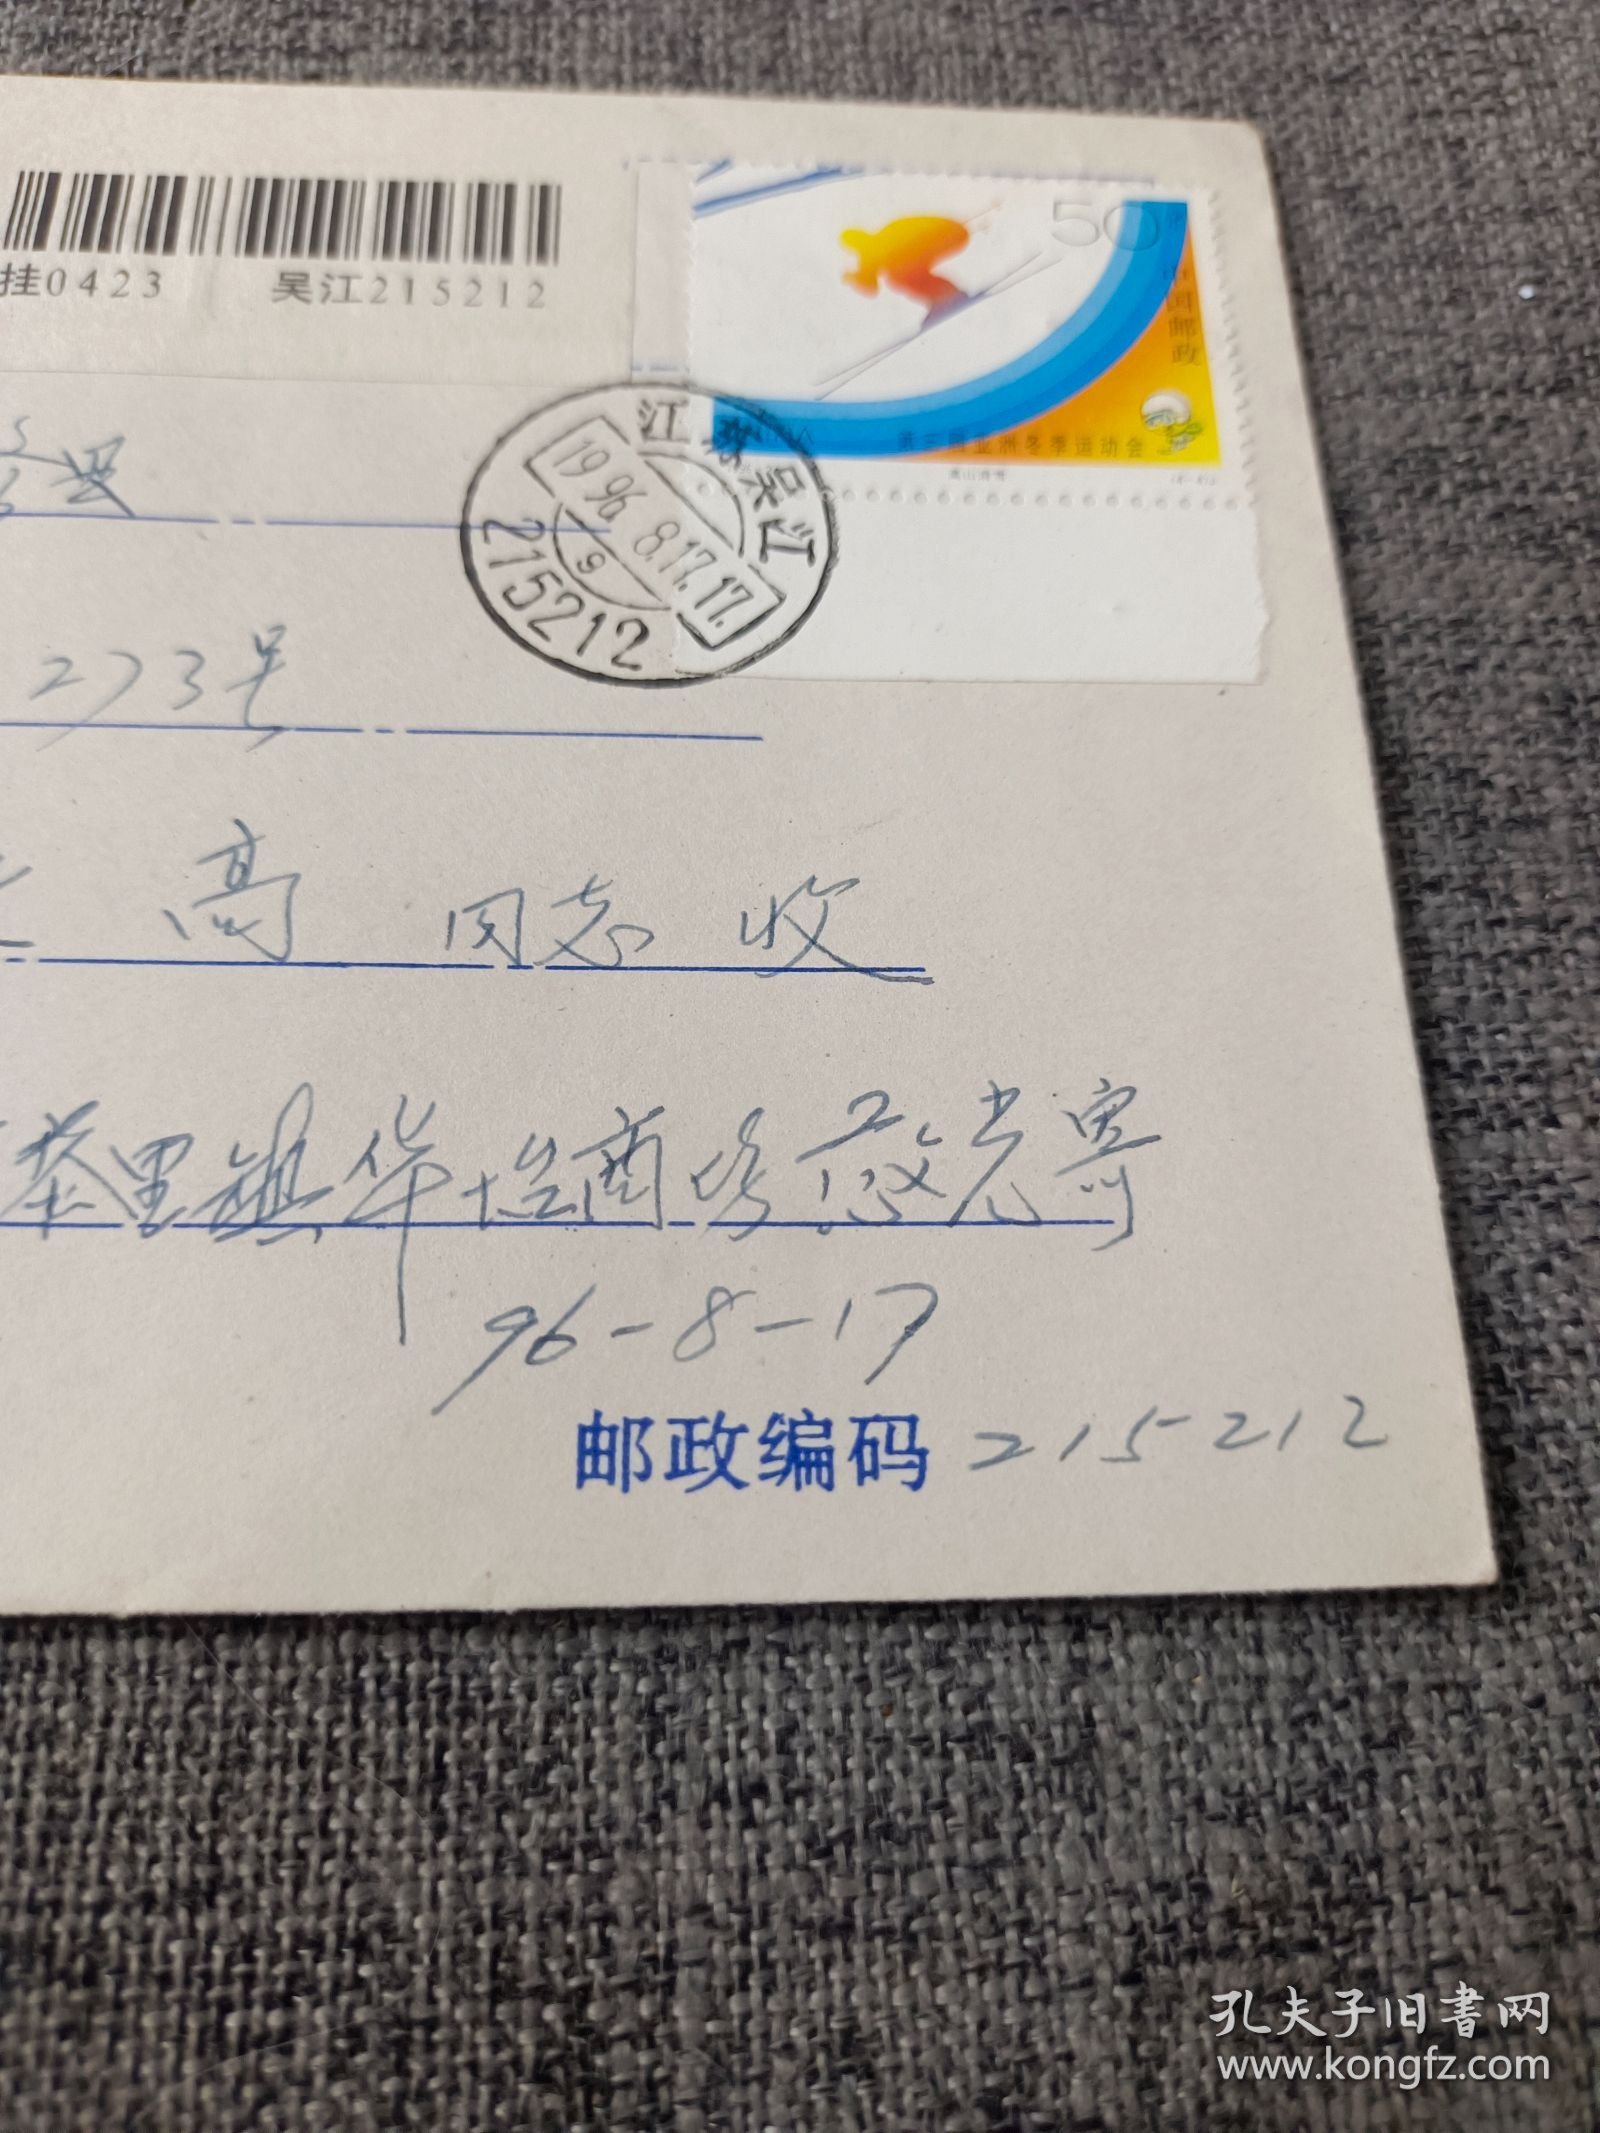 挂0423 吴江215212
50分
中国邮政
第三届亚洲冬季运动会
高山滑雪
江苏吴江
1996.8.17.17.
9
215212
273号
高 同志 收
黎里镇华 商 寄
96-8-17
邮政编码 215212
孔夫子旧书网
www.kongfz.com